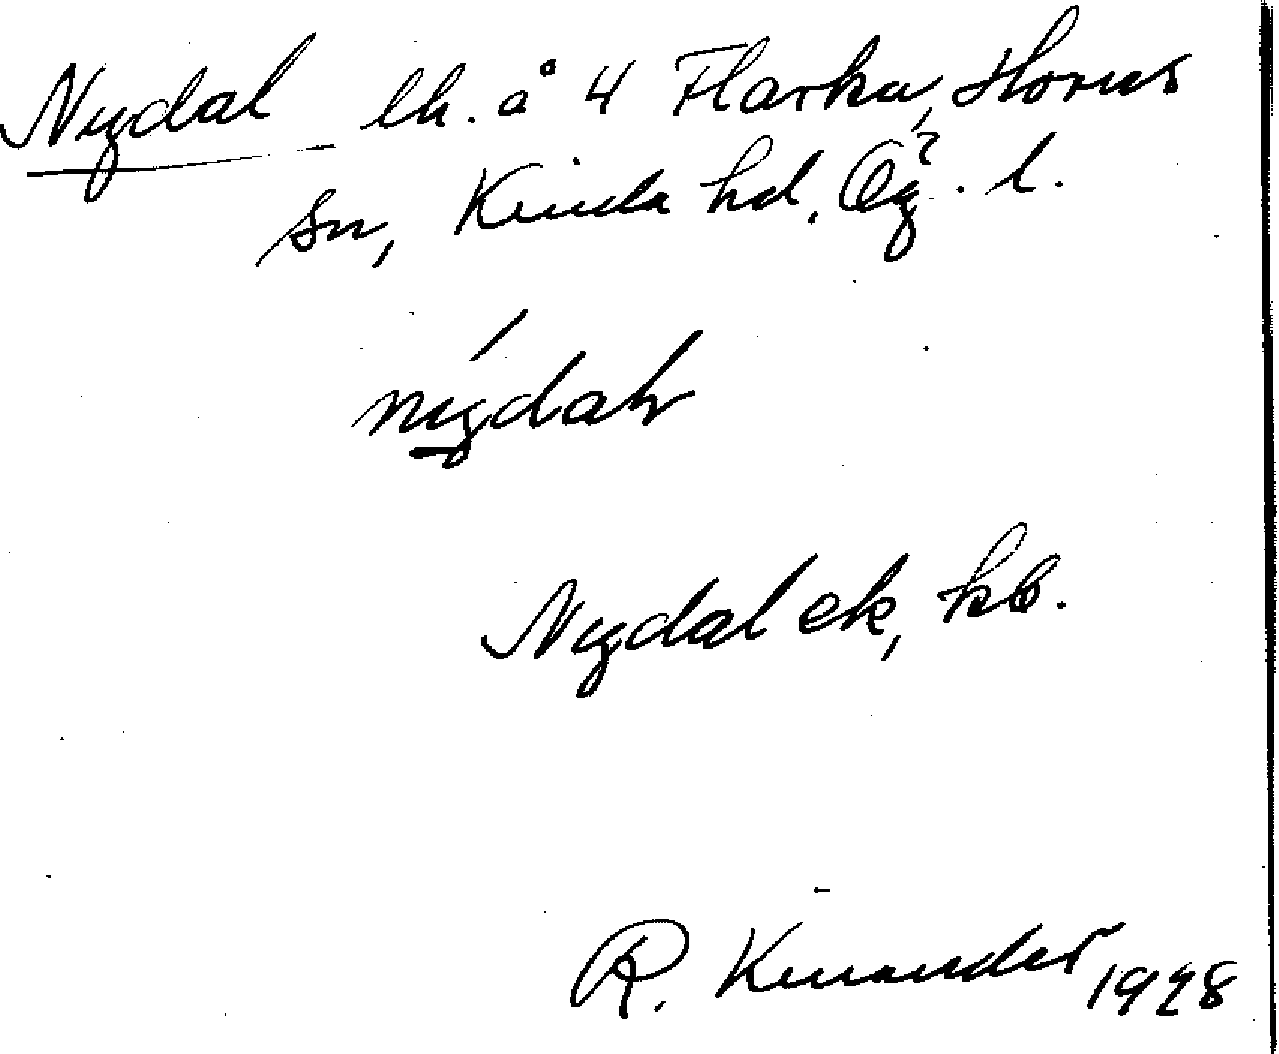 Nydal lh. å 4 Flarka, Horns
sn, Kinda hd, Ög. l.
nydal
Nydal ek, kb.
R. Kinander 1928